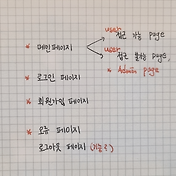 user
접근 가능 page
* 메인페이지
user
접근 불가능 page,
* Admin page
* 로그인 페이지
* 회원가입 페이지
* 오류 페이지
로그아웃 페이지